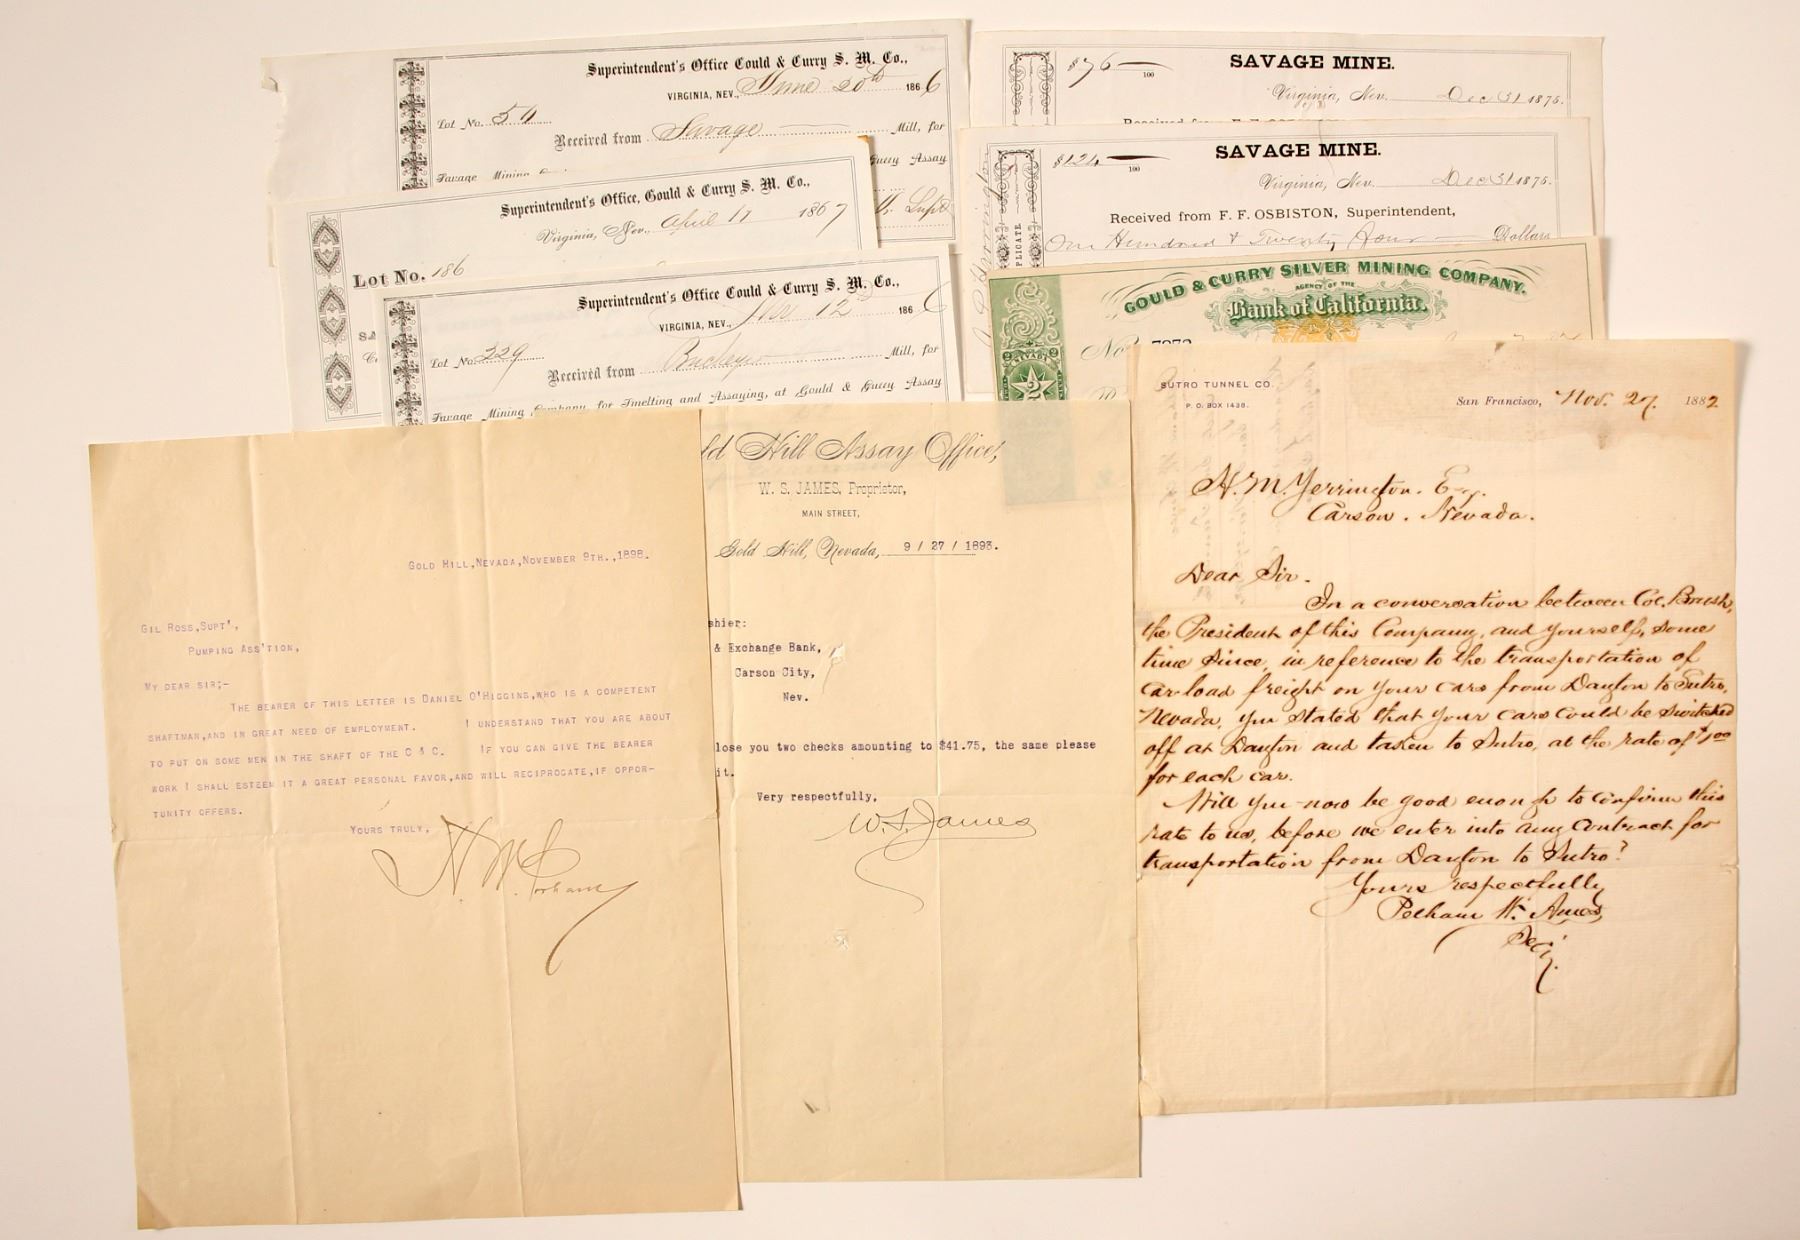 Superintendent's Office Gould & Curry S. M. Co.,
VIRGINIA, NEV., June 20th 1866
Lot No. 51
Received from Savage Mill, for
Savage Mining
Curry Assay
Supt
Superintendent's Office, Gould & Curry S. M. Co.,
Virginia, Nev., April 17 1867
Lot No. 186
Superintendent's Office Gould & Curry S. M. Co.,
VIRGINIA, NEV., 12th 1866
Lot No. 229
Received from Mill, for
Savage Mining Company, for Smelting and Assaying, at Gould & Curry Assay
$76 100
SAVAGE MINE.
Virginia, Nev. Dec 31 1875.
Received from F. F. OSBISTON
$124 100
SAVAGE MINE.
Virginia, Nev. Dec 31 1875.
Received from F. F. OSBISTON, Superintendent,
One Hundred & Twenty four Dollars
PLICATE
GOULD & CURRY SILVER MINING COMPANY.
AGENCY OF THE
Bank of California.
No 7873
NEVADA
2
GOLD HILL, NEVADA, NOVEMBER 9TH., 1898.
GIL ROSS, SUPT',
PUMPING ASS'TION,
MY DEAR SIR;-
THE BEARER OF THIS LETTER IS DANIEL O'HIGGINS, WHO IS A COMPETENT
SHAFTMAN, AND IN GREAT NEED OF EMPLOYMENT. I UNDERSTAND THAT YOU ARE ABOUT
TO PUT ON SOME MEN IN THE SHAFT OF THE C & C. IF YOU CAN GIVE THE BEARER
WORK I SHALL ESTEEM IT A GREAT PERSONAL FAVOR, AND WILL RECIPROCATE, IF OPPOR-
TUNITY OFFERS.
YOURS TRULY,
ld Hill Assay Office,
W. S. JAMES, Proprietor,
MAIN STREET,
Gold Hill, Nevada, 9/27/1893.
shier:
& Exchange Bank,
Carson City,
Nev.
lose you two checks amounting to $41.75, the same please
it.
Very respectfully,
W. S. James
SUTRO TUNNEL CO.
P. O. BOX 1438.
San Francisco, Nov. 27. 1882
H. M. Yerrington. Esq.
Carson. Nevada.
Dear Sir.
In a conversation between Col. Brush,
the President of this Company, and yourself, some
time since, in reference to the transportation of
car-load freight on your cars from Dayton to Sutro,
Nevada, you stated that your cars could be switched
off at Dayton and taken to Sutro, at the rate of $1.00
for each car.
Will you now be good enough to confirm this
rate to us, before we enter into any contract for
transportation from Dayton to Sutro?
Yours respectfully
Pelham W. Ames,
Sec'y.